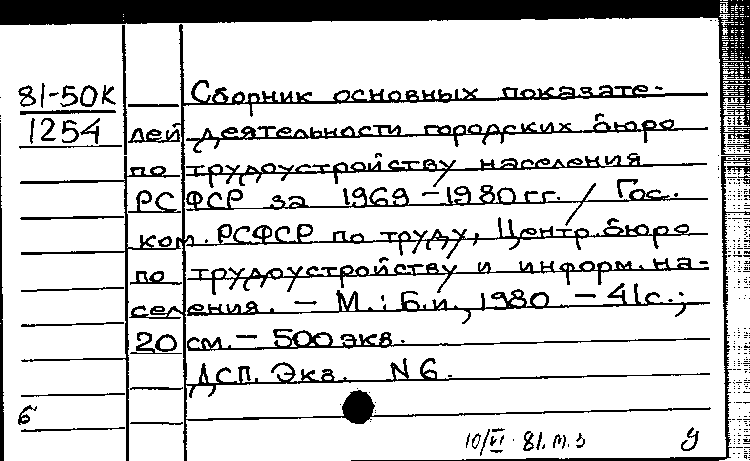 81-50К
1254
Сборник основных показате-
лей деятельности городских бюро
по трудоустройству населения
РСФСР за 1969-1980гг. / Гос.
ком. РСФСР по труду, Центр. бюро
по трудоустройству и информ. на-
селения. - М.: Б.и., 1980 - 41с.;
20 см. - 500 экз.
ДСП. Экз. N 6.
б
10/VI 81.